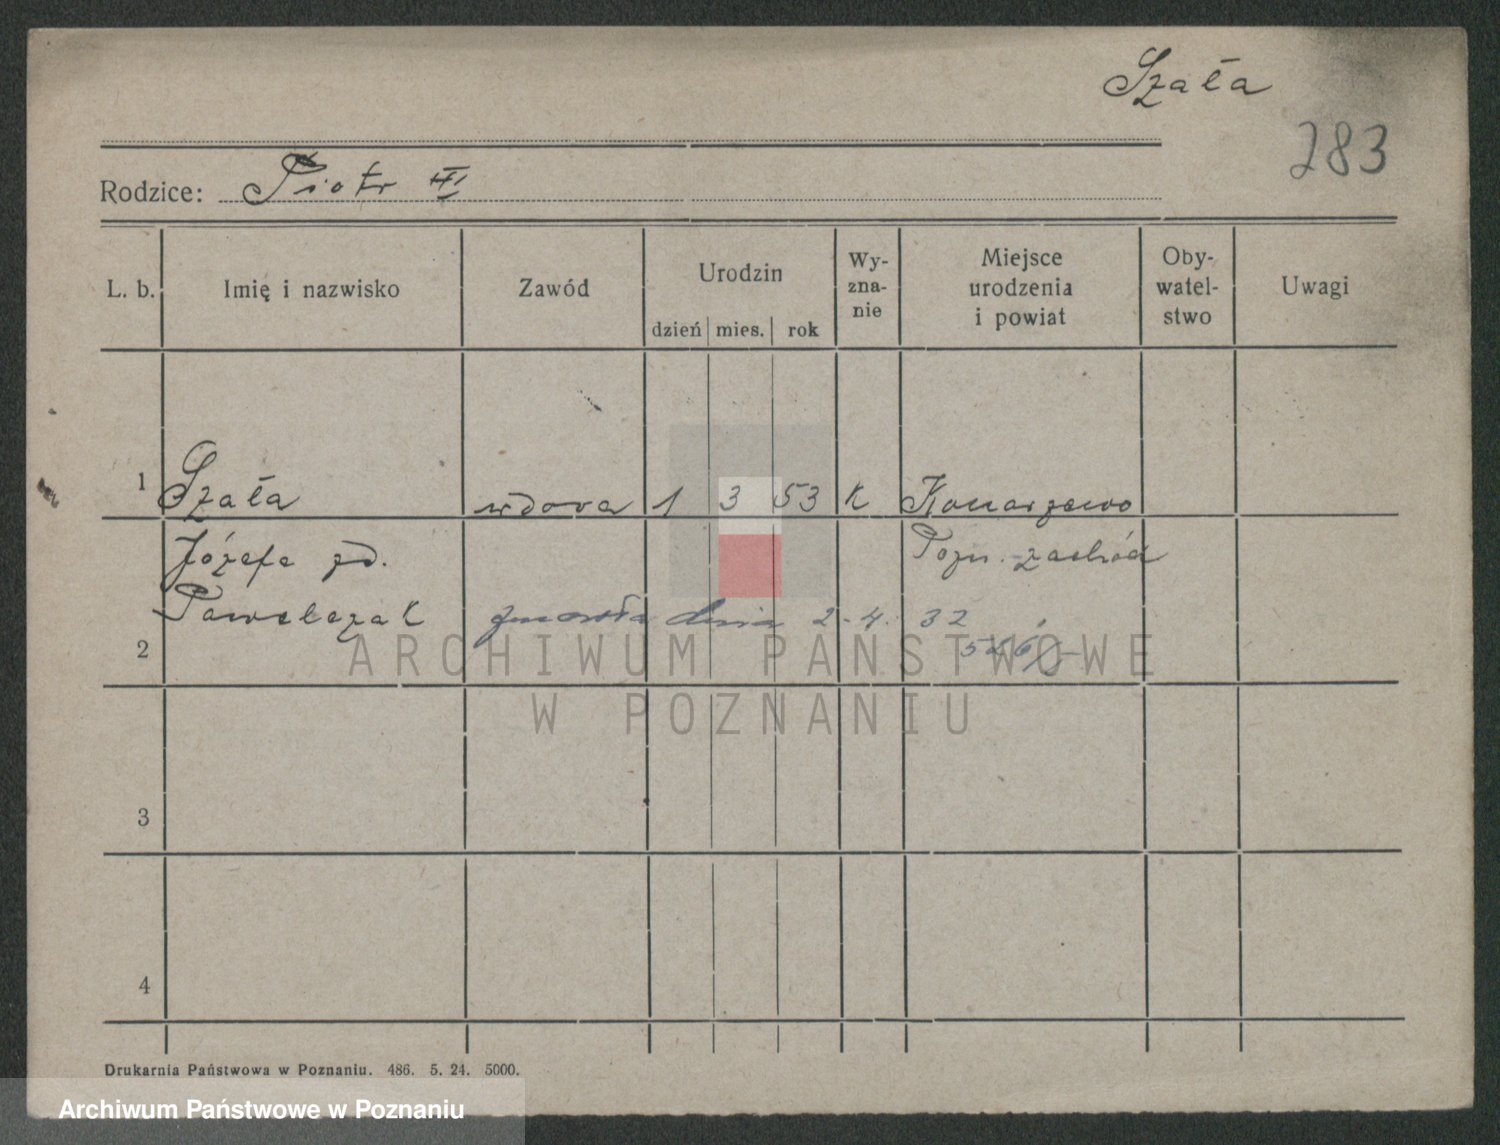 Szała
283
Rodzice: Piotr III
L. b. Imię i nazwisko Zawód Urodzin dzień mies. rok Wy-zna-nie Miejsce urodzenia i powiat Oby-watel-stwo Uwagi
1 Szała wdowa 1 3 53 K Konarzewo
Józefa zd. Pozn. zachód
Pawelczak zmarła dnia 2.4.32
2
ARCHIWUM PAŃSTWOWE
W POZNANIU
3
4
Drukarnia Państwowa w Poznaniu. 486. 5. 24. 5000.
Archiwum Państwowe w Poznaniu